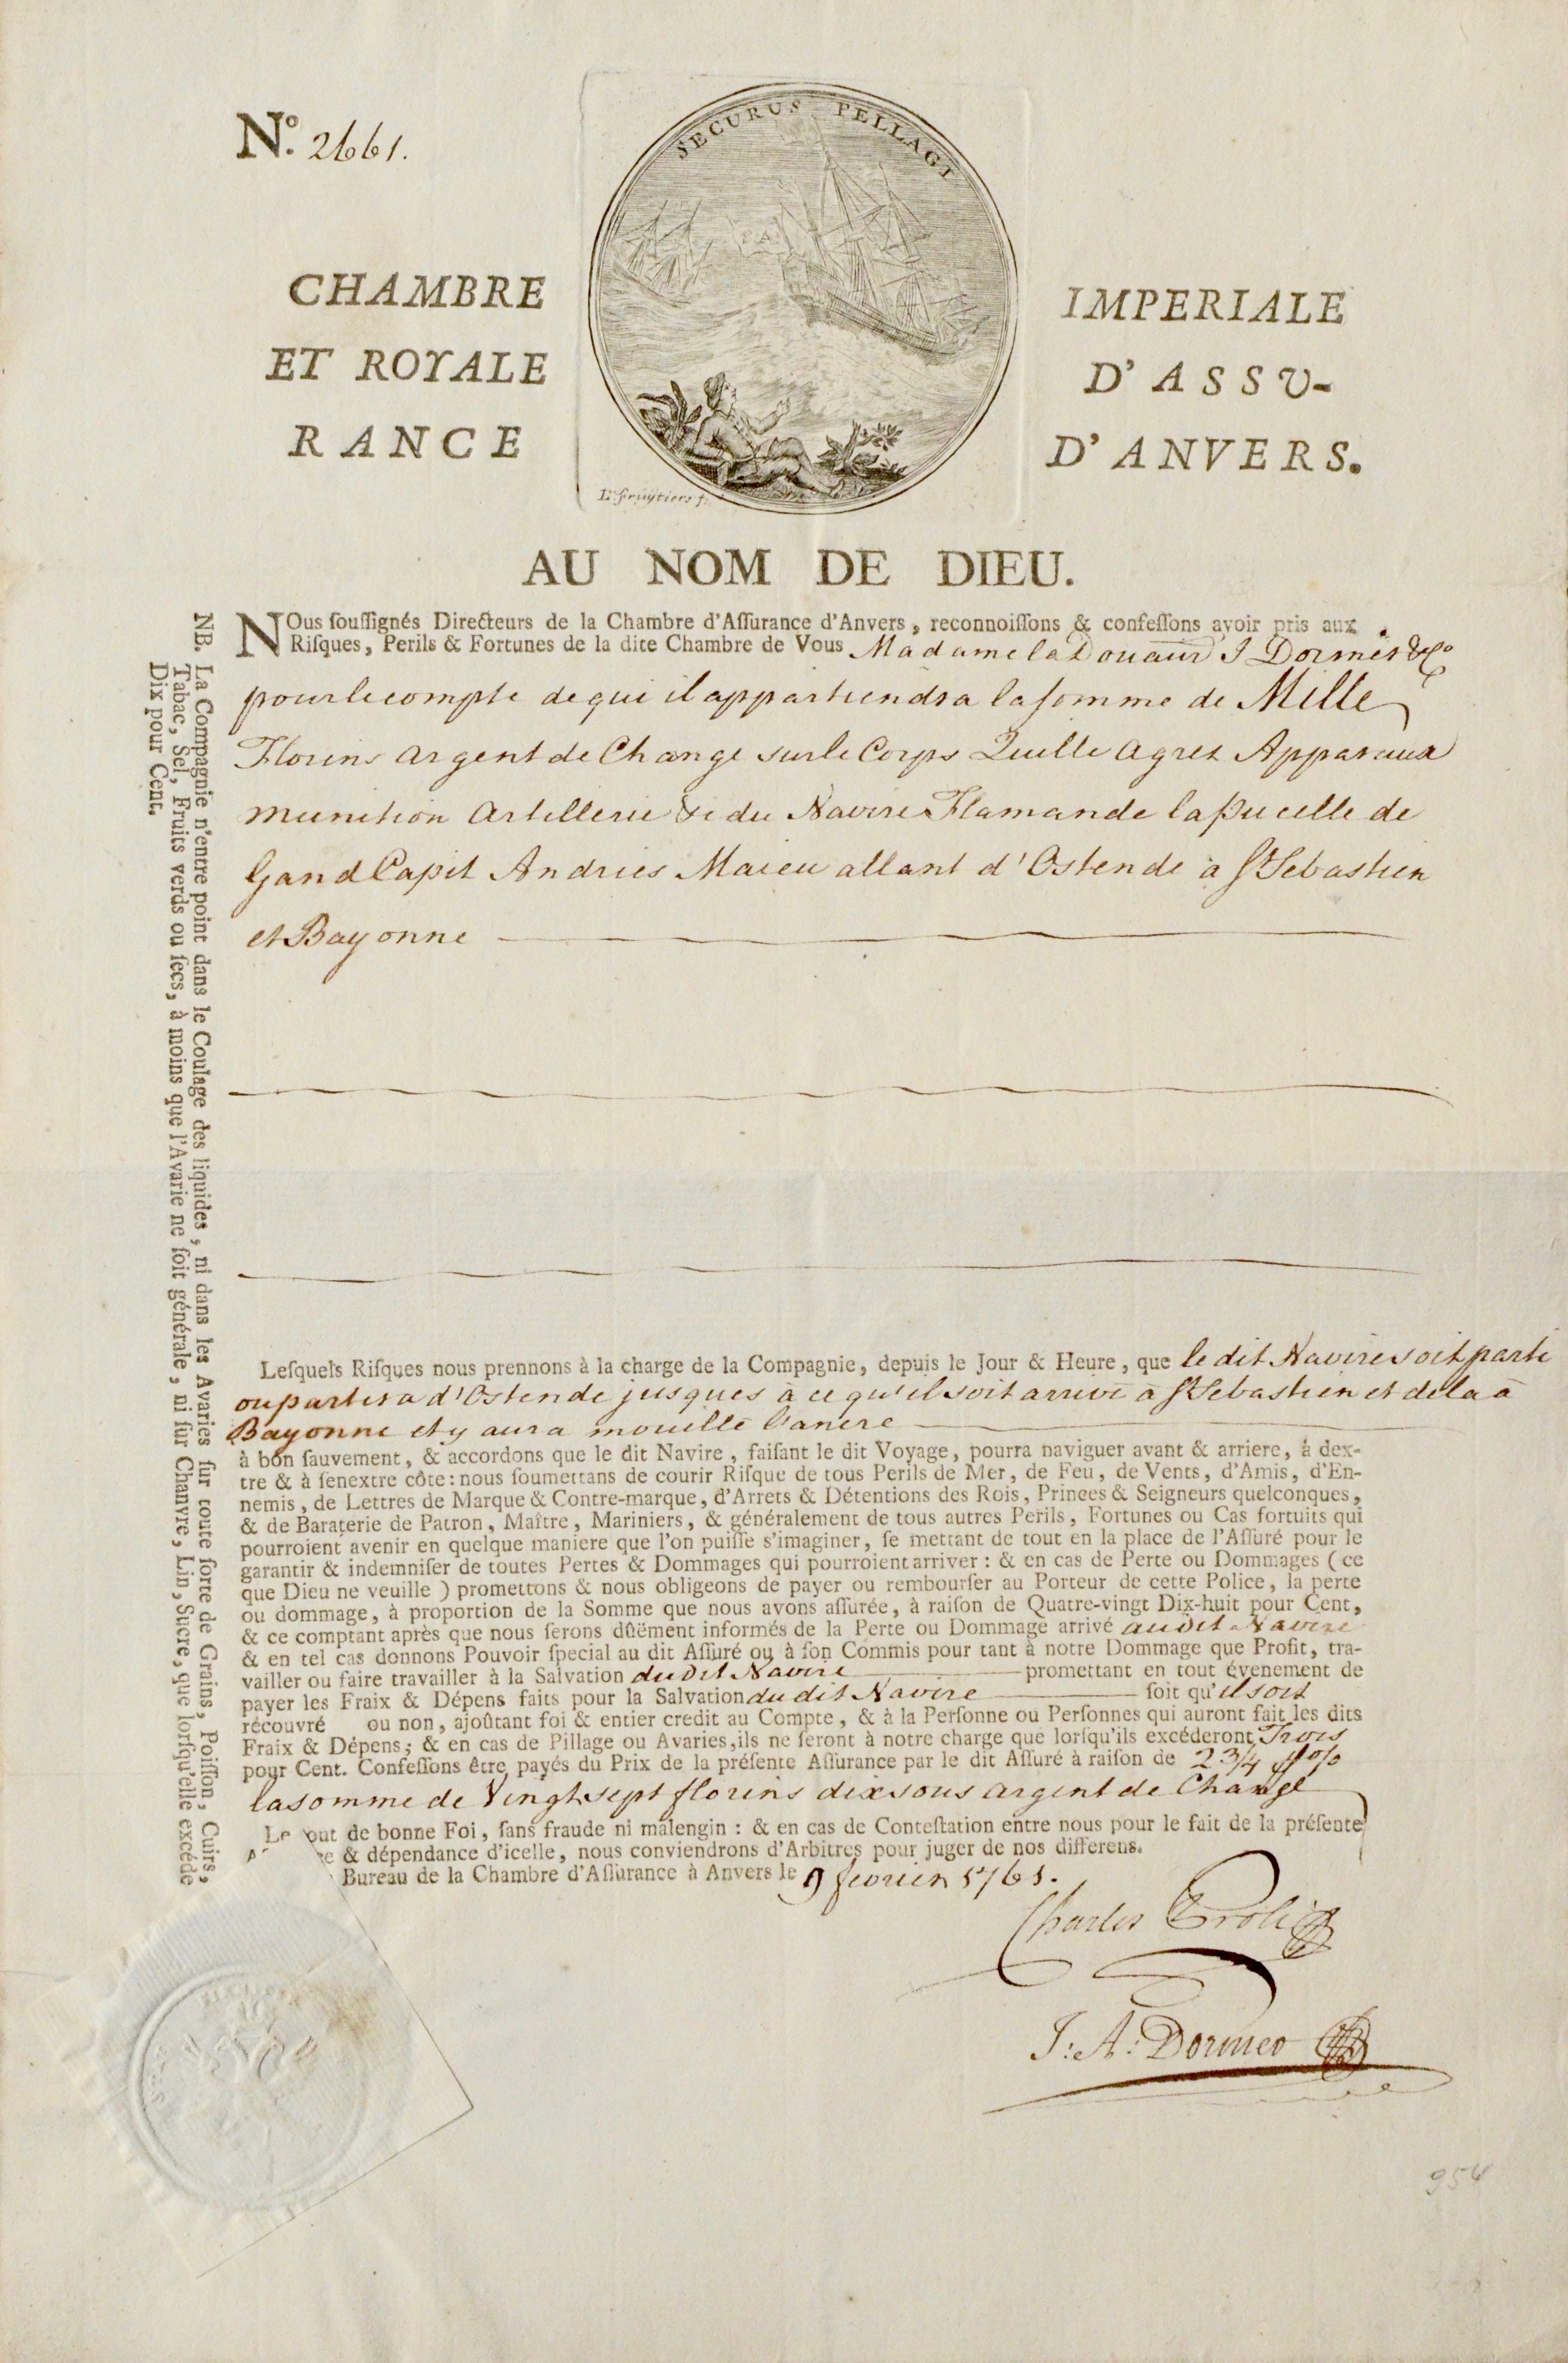 Nº. 2661.
SECURUS PELLAGI
CHAMBRE IMPERIALE
ET ROYALE D' ASSU-
RANCE D' ANVERS.
L. fruÿtiers f.
AU NOM DE DIEU.
NOus ſouſſignés Directeurs de la Chambre d'Aſſurance d'Anvers, reconnoiſſons & confeſſons avoir pris aux
Riſques, Perils & Fortunes de la dite Chambre de Vous Madame la Douair J Dormer & Cº
pour le compte de qui il appartiendra la ſomme de Mille
Florins argent de Change sur le Corps Quille agrez Apparaux
munition artillerie &c du Navire Flamande la Pucelle de
Gand Capit Andries Maieu allant d'Ostende à St Sebastien
et Bayonne
Leſquels Riſques nous prennons à la charge de la Compagnie, depuis le Jour & Heure, que le dit Navire soit parti
ou partira d'Ostende jusques à ce qu'il soit arrivé à St Sebastien et de la à
Bayonne et y aura mouillé l'ancre
à bon ſauvement, & accordons que le dit Navire, faiſant le dit Voyage, pourra naviguer avant & arriere, à dex-
tre & à ſenextre côte: nous ſoumettans de courir Riſque de tous Perils de Mer, de Feu, de Vents, d'Amis, d'En-
nemis, de Lettres de Marque & Contre-marque, d'Arrets & Détentions des Rois, Princes & Seigneurs quelconques,
& de Baraterie de Patron, Maître, Mariniers, & généralement de tous autres Perils, Fortunes ou Cas fortuits qui
pourroient avenir en quelque maniere que l'on puiſſe s'imaginer, ſe mettant de tout en la place de l'Aſſuré pour le
garantir & indemniſer de toutes Pertes & Dommages qui pourroient arriver: & en cas de Perte ou Dommages (ce
que Dieu ne veuille) promettons & nous obligeons de payer ou rembourſer au Porteur de cette Police, la perte
ou dommage, à proportion de la Somme que nous avons aſſurée, à raiſon de Quatre-vingt Dix-huit pour Cent,
& ce comptant après que nous ſerons dûëment informés de la Perte ou Dommage arrivé au dit Navire
& en tel cas donnons Pouvoir ſpecial au dit Aſſuré ou à ſon Commis pour tant à notre Dommage que Profit, tra-
vailler ou faire travailler à la Salvation du dit Navire promettant en tout évenement de
payer les Fraix & Dépens faits pour la Salvation du dit Navire ſoit qu'il soit
récouvré ou non, ajoûtant foi & entier credit au Compte, & à la Perſonne ou Perſonnes qui auront fait les dits
Fraix & Dépens; & en cas de Pillage ou Avaries, ils ne ſeront à notre charge que lorſqu'ils excéderont Trois
pour Cent. Confeſſons être payés du Prix de la préſente Aſſurance par le dit Aſſuré à raiſon de 2 3/4 p%
la somme de Vingt sept florins dix sous argent de Change
Le out de bonne Foi, ſans fraude ni malengin: & en cas de Conteſtation entre nous pour le fait de la préſente
& dépendance d'icelle, nous conviendrons d'Arbitres pour juger de nos differens.
Bureau de la Chambre d'Aſſurance à Anvers le 9 fevrier 1761.
Charles
J: A: Dormer
954
NB. La Compagnie n'entre point dans le Coulage des liquides, ni dans les Avaries ſur toute ſorte de Grains, Poiſſon, Cuirs,
Tabac, Sel, Fruits verds ou ſecs, à moins que l'Avarie ne ſoit générale, ni ſur Chanvre, Lin, Sucre, que lorſqu'elle excéde
Dix pour Cent.